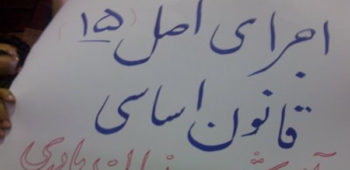 اجرای اصل ۱۵
قانون اساسی
مادری